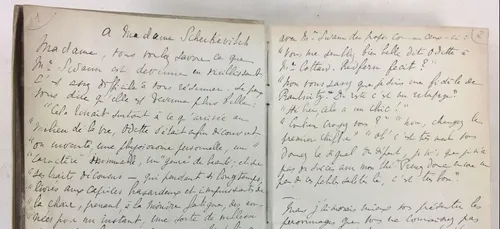 A Madame Scheikévitch
Madame, vous voulez savoir ce que
Me Swann est devenue en vieillissant.
C'est assez difficile à vous résumer. Je puis
vous dire qu'elle est devenue plus belle :
"Cela tenait surtout à ce qu'arrivée au
"milieu de la vie, Odette s'était enfin découvert
"ou inventé, une physionomie personnelle, un
"caractère" immuable, un "genre de beauté", et sur
"ses traits décousus — qui pendant si longtemps,
"livrés aux caprices hasardeux et impuissants de
"la chair, prenant à la moindre fatigue, des an-
"nées pour un instant, une sorte de vieillesse
avec Me Swann des propos comme ceux-ci :
"Vous me semblez bien belle dit Odette à
Me Cottard. Redfern fecit ?"
"Non vous savez que je suis une fidèle de
Raudnitz. Du reste c'est un retapage"
"Hé bien, cela a un chic !"
"Combien croyez vous ? "non, changez le
premier chiffre" "Oh ! c'est très mal vous
Donnez le signal du départ, je vois que je n'ai
pas de succès avec mon thé" "Prenez donc encore un
peu de ces petites saletés là, c'est très bon."
Mais j'aimerais mieux vous présenter les
personnages que vous ne connaissez pas